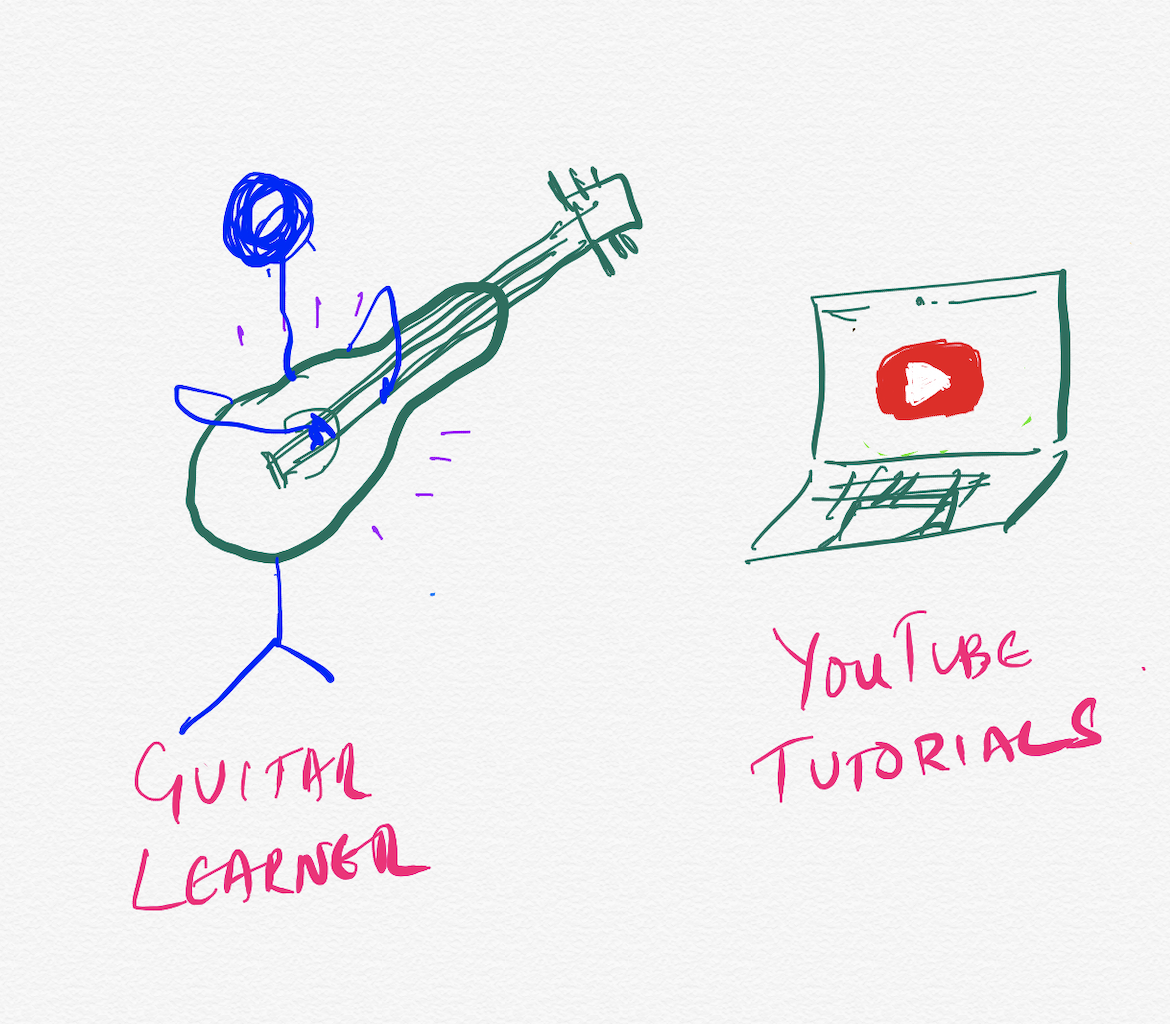 GUITAR
LEARNER
YOUTUBE
TUTORIALS